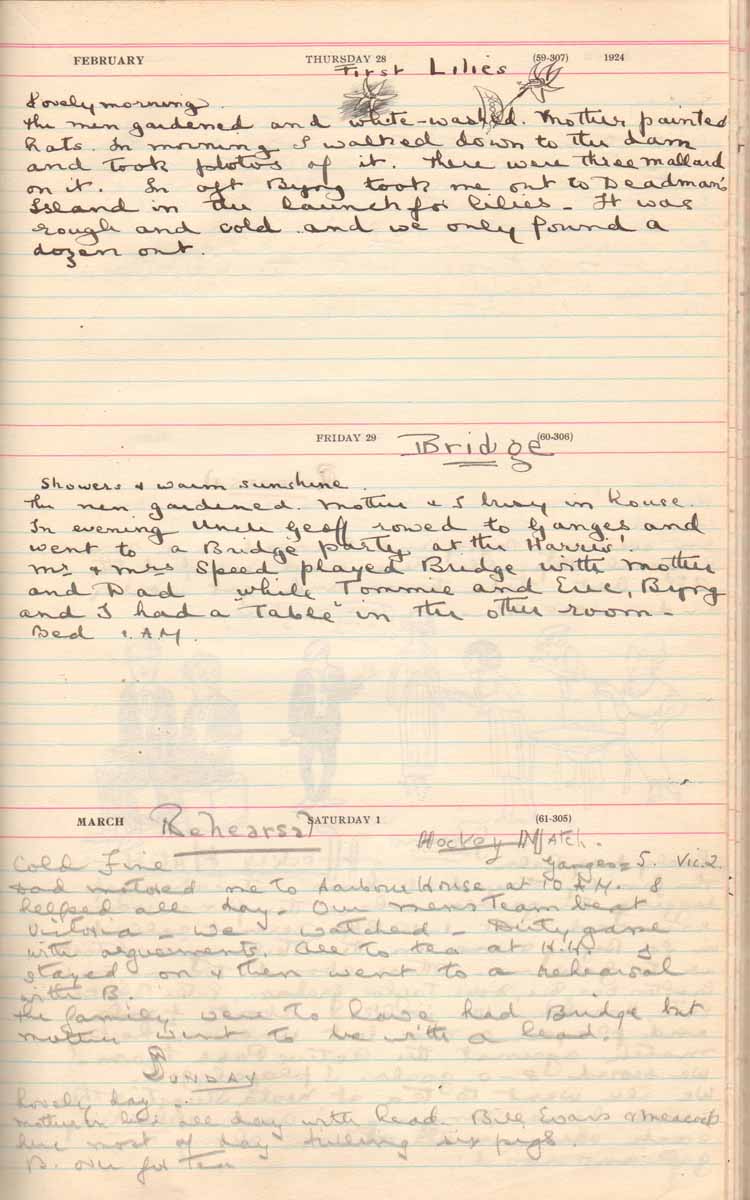 FEBRUARY THURSDAY 28 (59-307) 1924
First Lilies
Lovely morning.
The men gardened and white-washed. Mother painted
hats. In morning I walked down to the dam
and took photos of it. There were three mallard
on it. In aft Byng took me out to Deadman's
Island in the launch for lilies - It was
rough and cold and we only found a
dozen out.
FRIDAY 29 (60-306)
Bridge
Showers & warm sunshine.
The men gardened. Mother & I busy in house.
In evening Uncle Geoff rowed to Ganges and
went to a Bridge party at the Harris'.
Mr & Mrs Speed played Bridge with mother
and Dad while Tommie and Eric, Byng
and I had a "Table" in the other room -
Bed 1. A.M.
MARCH SATURDAY 1 (61-305)
Rehearsal
Hockey Match.
Cold Fine Ganges = 5. Vic. 2.
Dad motored me to Harbour House at 10 A.M. &
helped all day. Our mens Team beat
Victoria - we watched - Dirty game
with arguements. All to tea at H.H. I
stayed on & then went to a rehearsal
with B.
The family were to have had Bridge but
mother went to be with a head.
SUNDAY
Lovely day.
Mother in bed all day with head. Bill Evans & Meacock
here most of day killing six pigs.
B. over for Tea